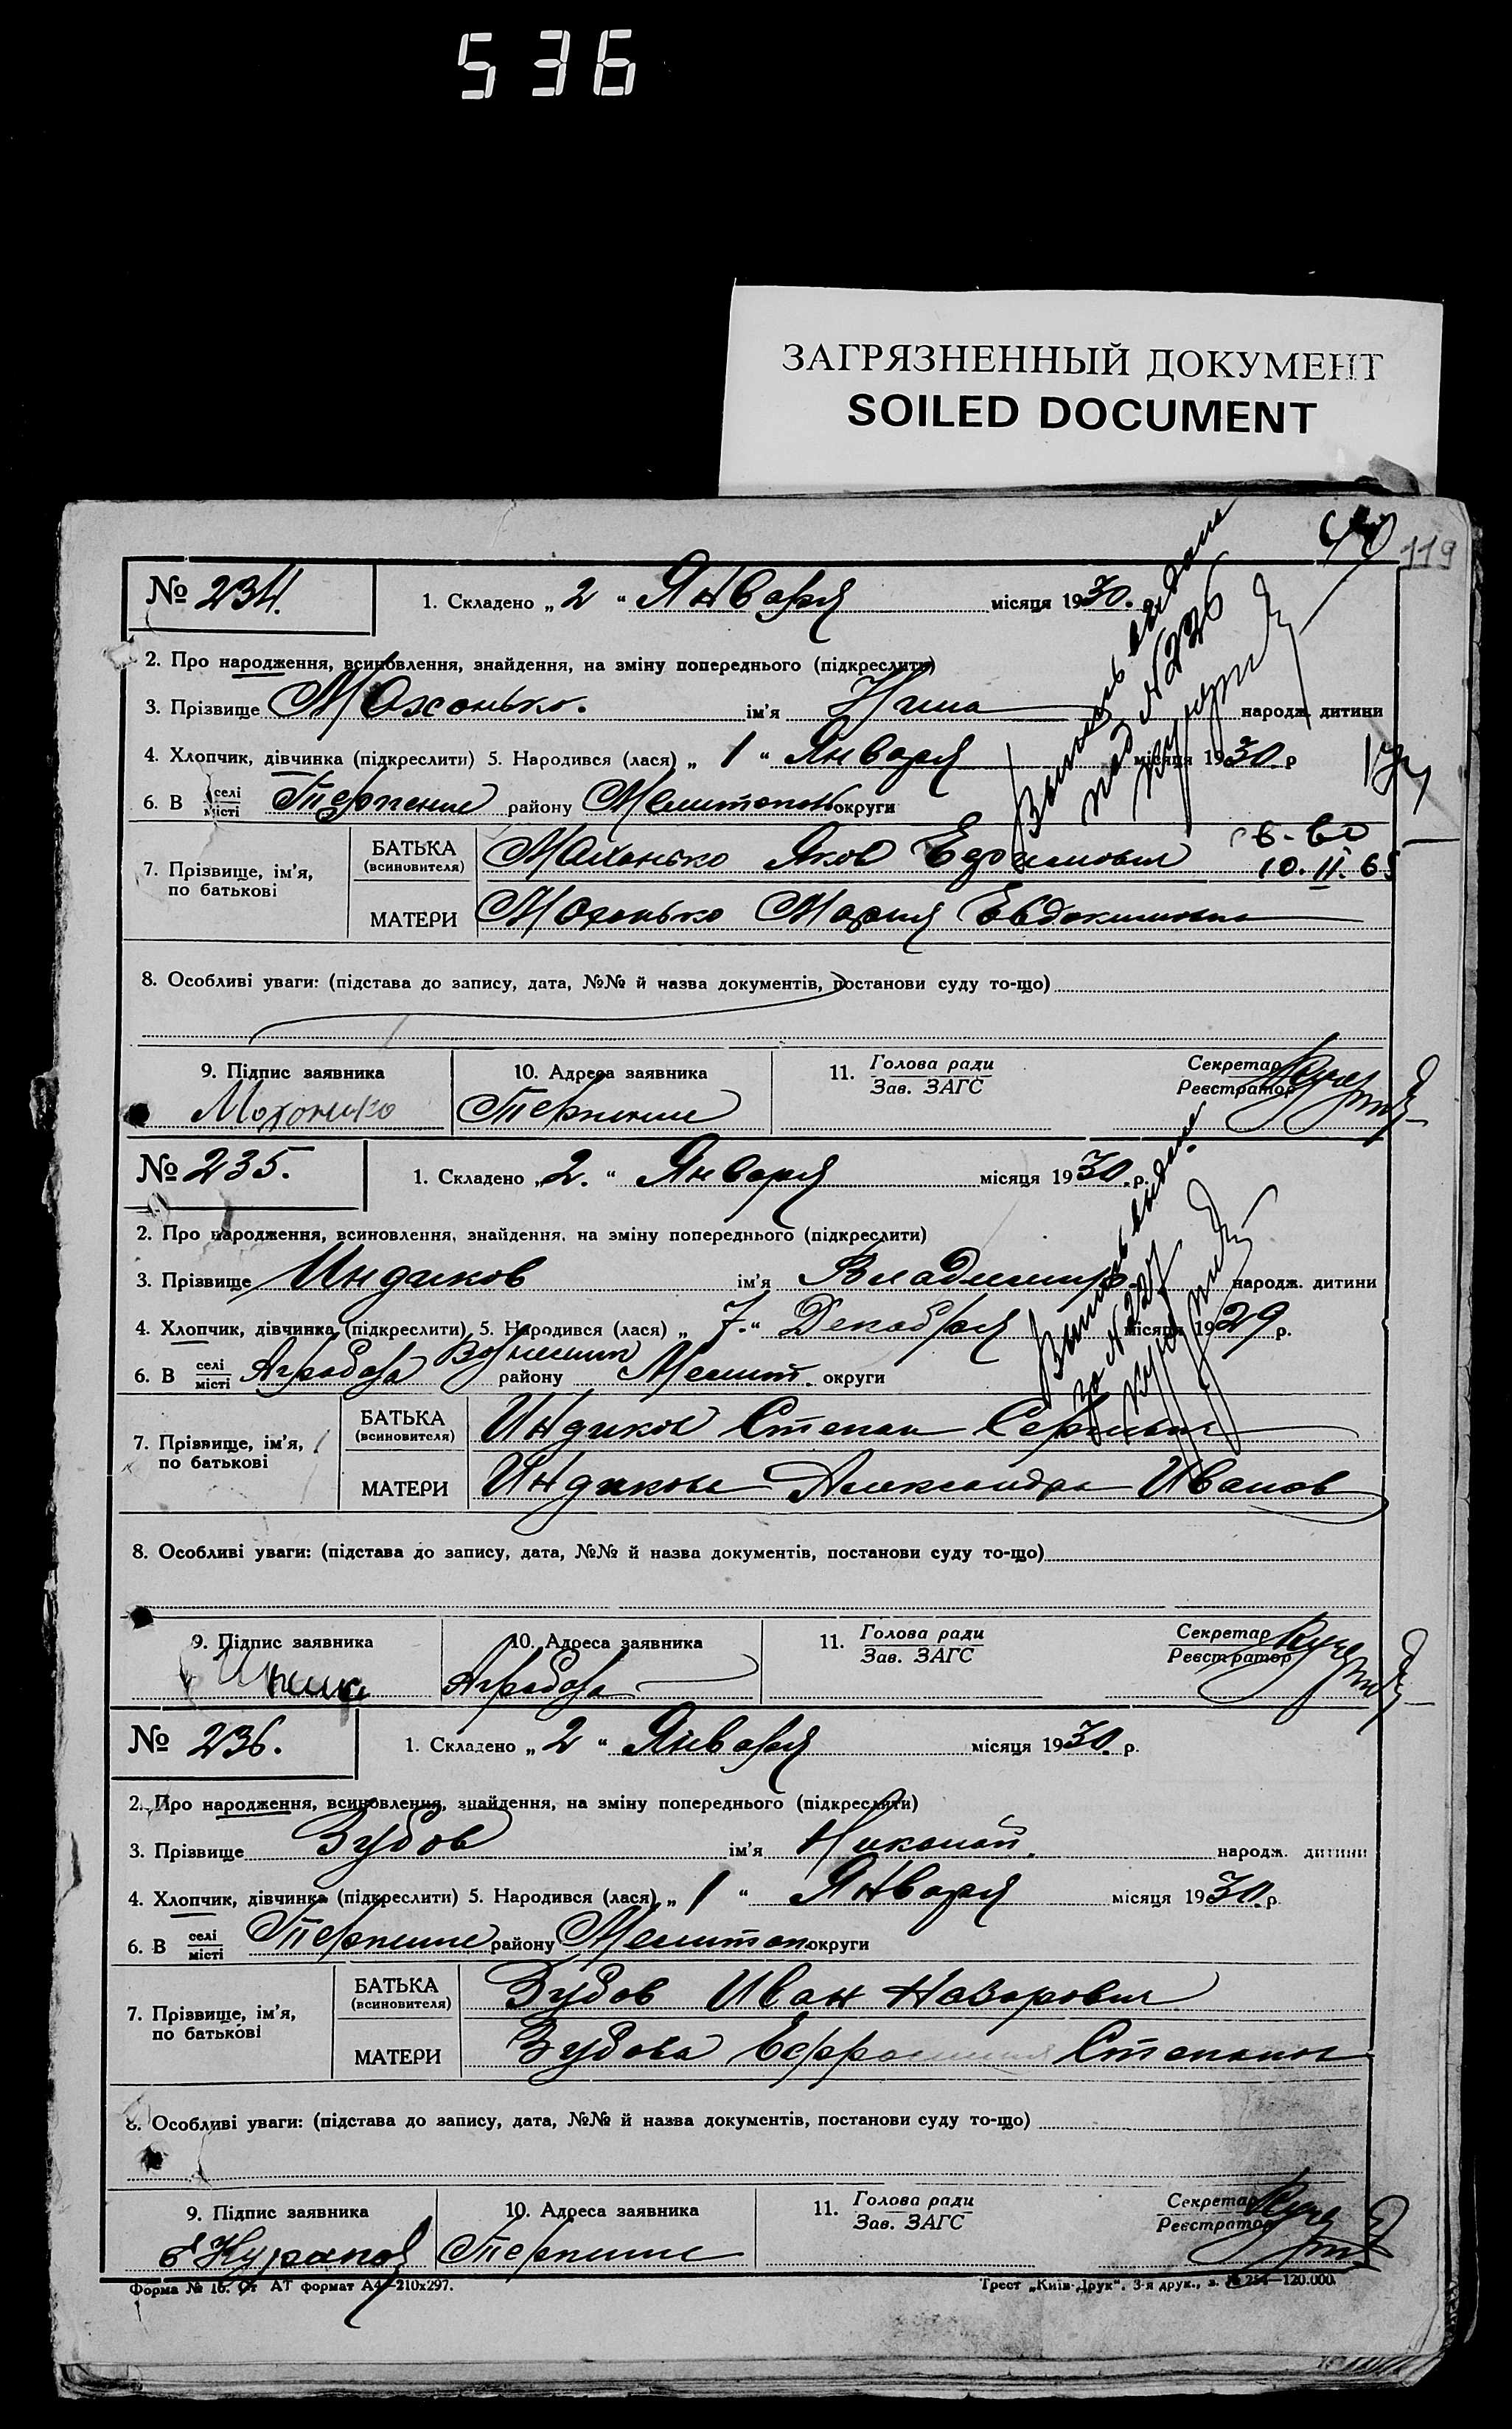 536
ЗАГРЯЗНЕННЫЙ ДОКУМЕНТ
SOILED DOCUMENT
119
№ 234. 1. Складено „ 2 “ Января місяця 1930.
2. Про народження, всиновлення, знайдення, на зміну попереднього (підкреслити)
3. Прізвище Мохонько. ім'я Нина народж. дитини
4. Хлопчик, дівчинка (підкреслити) 5. Народився (лася) „ 1 “ Января місяця 1930 р
6. В селі місті Терпение району Мелитопол округи
7. Прізвище, ім'я, по батькові
БАТЬКА (всиновителя) Мохонько Яков
10.II.65
МАТЕРИ Мохонько Мария Евдокимовна
8. Особливі уваги: (підстава до запису, дата, №№ й назва документів, постанови суду то-що)
9. Підпис заявника 10. Адреса заявника 11. Голова ради Зав. ЗАГС Секретар Реєстратор
Мохонько Терпение
Выпись выдана
под N 226
№ 235. 1. Складено „ 2. “ Января місяця 1930 р.
2. Про народження, всиновлення, знайдення, на зміну попереднього (підкреслити)
3. Прізвище Индиков ім'я Владимир. народж. дитини
4. Хлопчик, дівчинка (підкреслити) 5. Народився (лася) „ 7. “ Декабря місяця 1929 р.
6. В селі місті району Мелит. округи
7. Прізвище, ім'я, по батькові
БАТЬКА (всиновителя) Индиков Степан
МАТЕРИ Индикова Александра Иванов
8. Особливі уваги: (підстава до запису, дата, №№ й назва документів, постанови суду то-що)
9. Підпис заявника 10. Адреса заявника 11. Голова ради Зав. ЗАГС Секретар Реєстратор
Выпись выдана
за N 227
№ 236. 1. Складено „ 2 “ Января місяця 1930. р.
2. Про народження, всиновлення, знайдення, на зміну попереднього (підкреслити)
3. Прізвище Зубов ім'я Николай. народж. дитини
4. Хлопчик, дівчинка (підкреслити) 5. Народився (лася) „ 1 “ Января місяця 1930. р.
6. В селі місті Терпение району Мелитоп. округи
7. Прізвище, ім'я, по батькові
БАТЬКА (всиновителя) Зубов Иван Назарович
МАТЕРИ Зубова Степанов
8. Особливі уваги: (підстава до запису, дата, №№ й назва документів, постанови суду то-що)
9. Підпис заявника 10. Адреса заявника 11. Голова ради Зав. ЗАГС Секретар Реєстратор
Терпение
Форма № 16. От АТ формат А4—210х297. Трест „Київ-Друк“. 3-я друк., з. № 254—120.000.